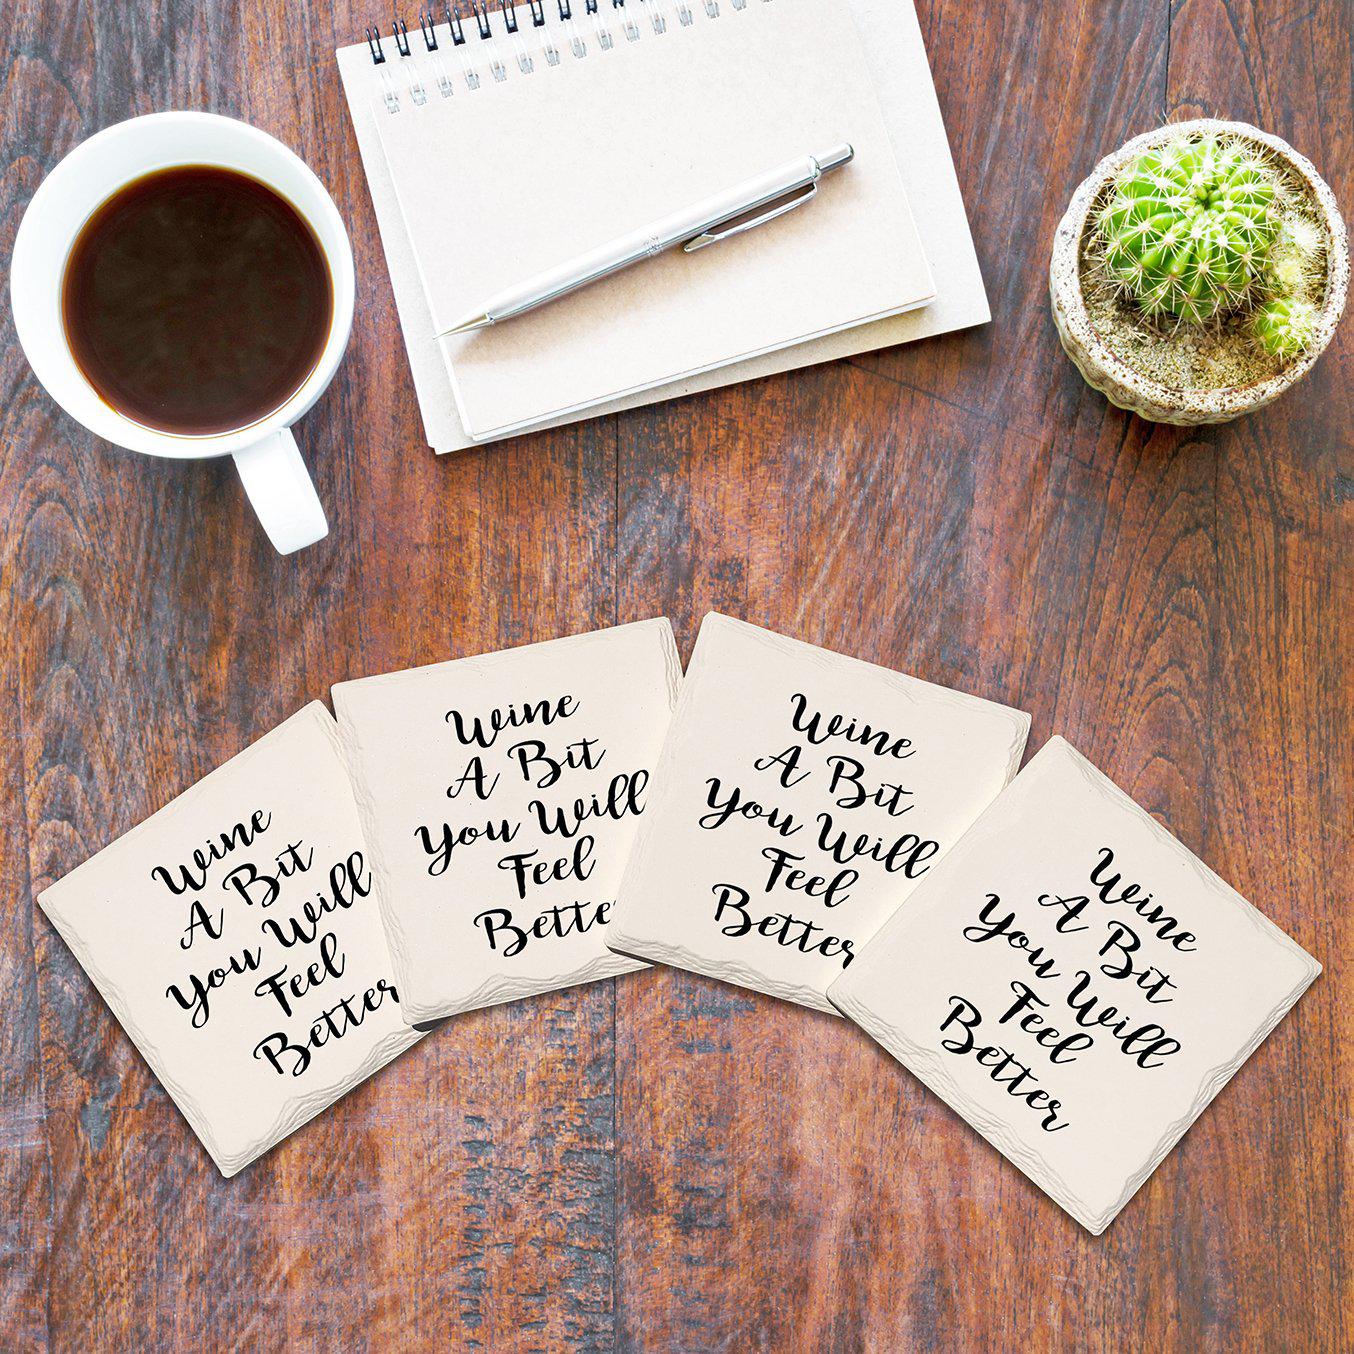 Wine
A Bit
You Will
Feel
Better
Wine
A Bit
You Will
Feel
Bette
Wine
A Bit
You Will
Feel
Better
Wine
A Bit
You Will
Feel
Better